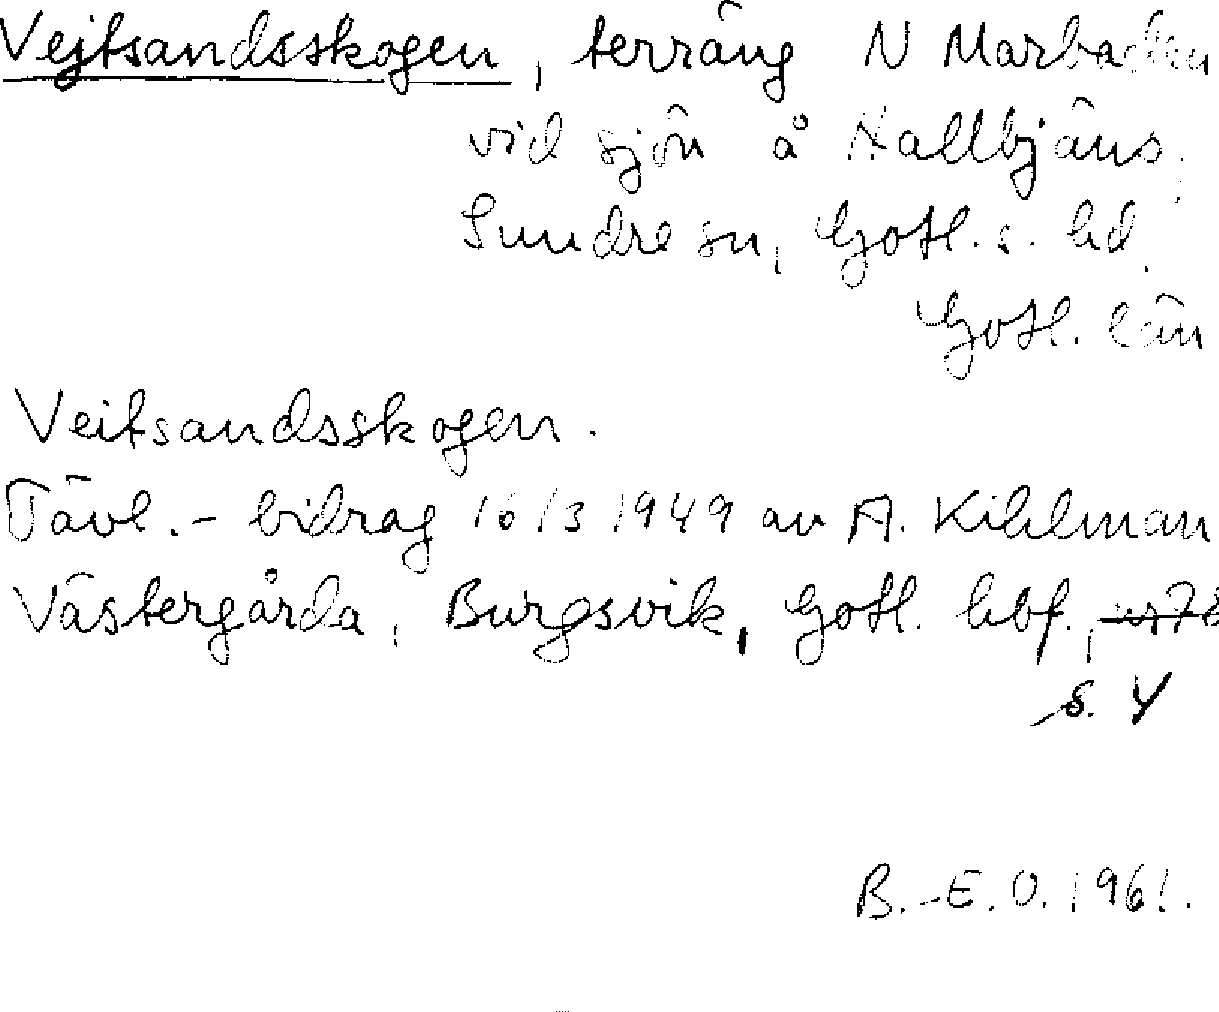 Vejtsandsskogen, terräng N Marbacken
vid sjön å Hallbjäns,
Sundre sn, Gotl. s. hd,
Gotl. län
Veitsandsskogen.
Tävl.- bidrag 16/3 1949 av A. Kihlman
Västergårda, Burgsvik, Gotl. hbf.,
s. 4
B.-E.O. 1961.